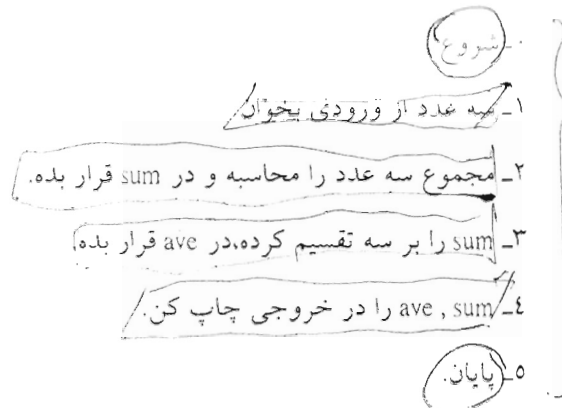 ۰ــ شروع
۱ــ سه عدد از ورودی بخوان
۲ــ مجموع سه عدد را محاسبه و در sum قرار بده.
۳ــ sum را بر سه تقسیم کرده،در ave قرار بده
٤ــ ave , sum را در خروجی چاپ کن.
٥ــ پایان.